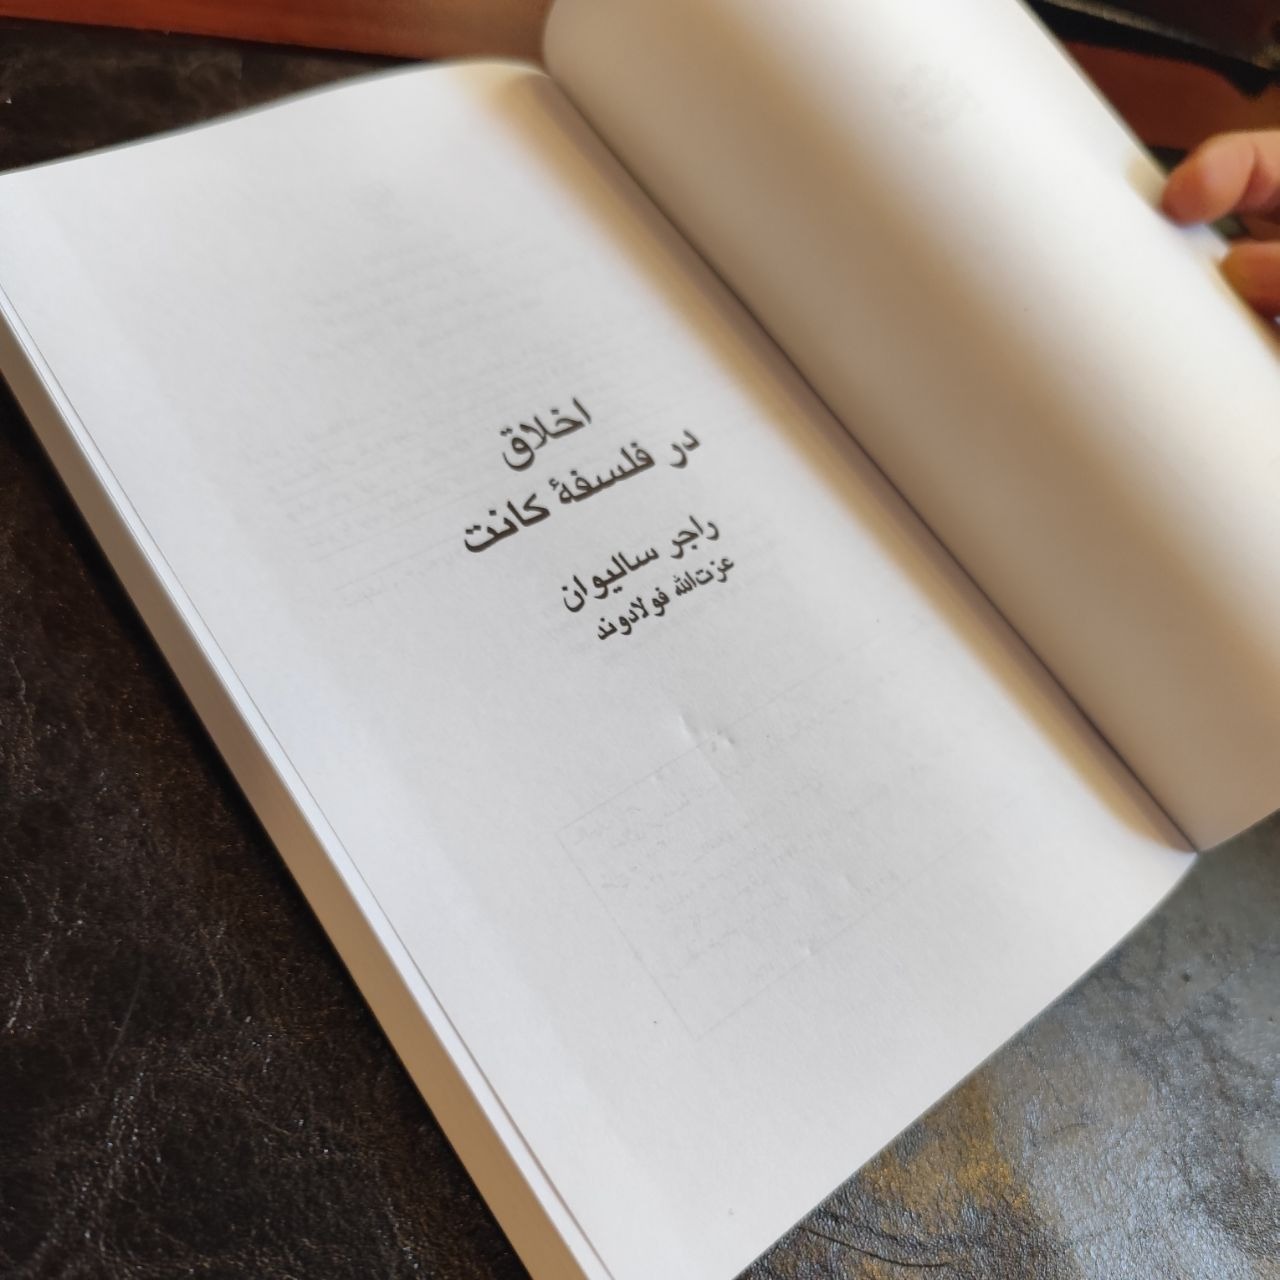 اخلاق
در فلسفهٔ کانت
راجر سالیوان
عزت‌الله فولادوند